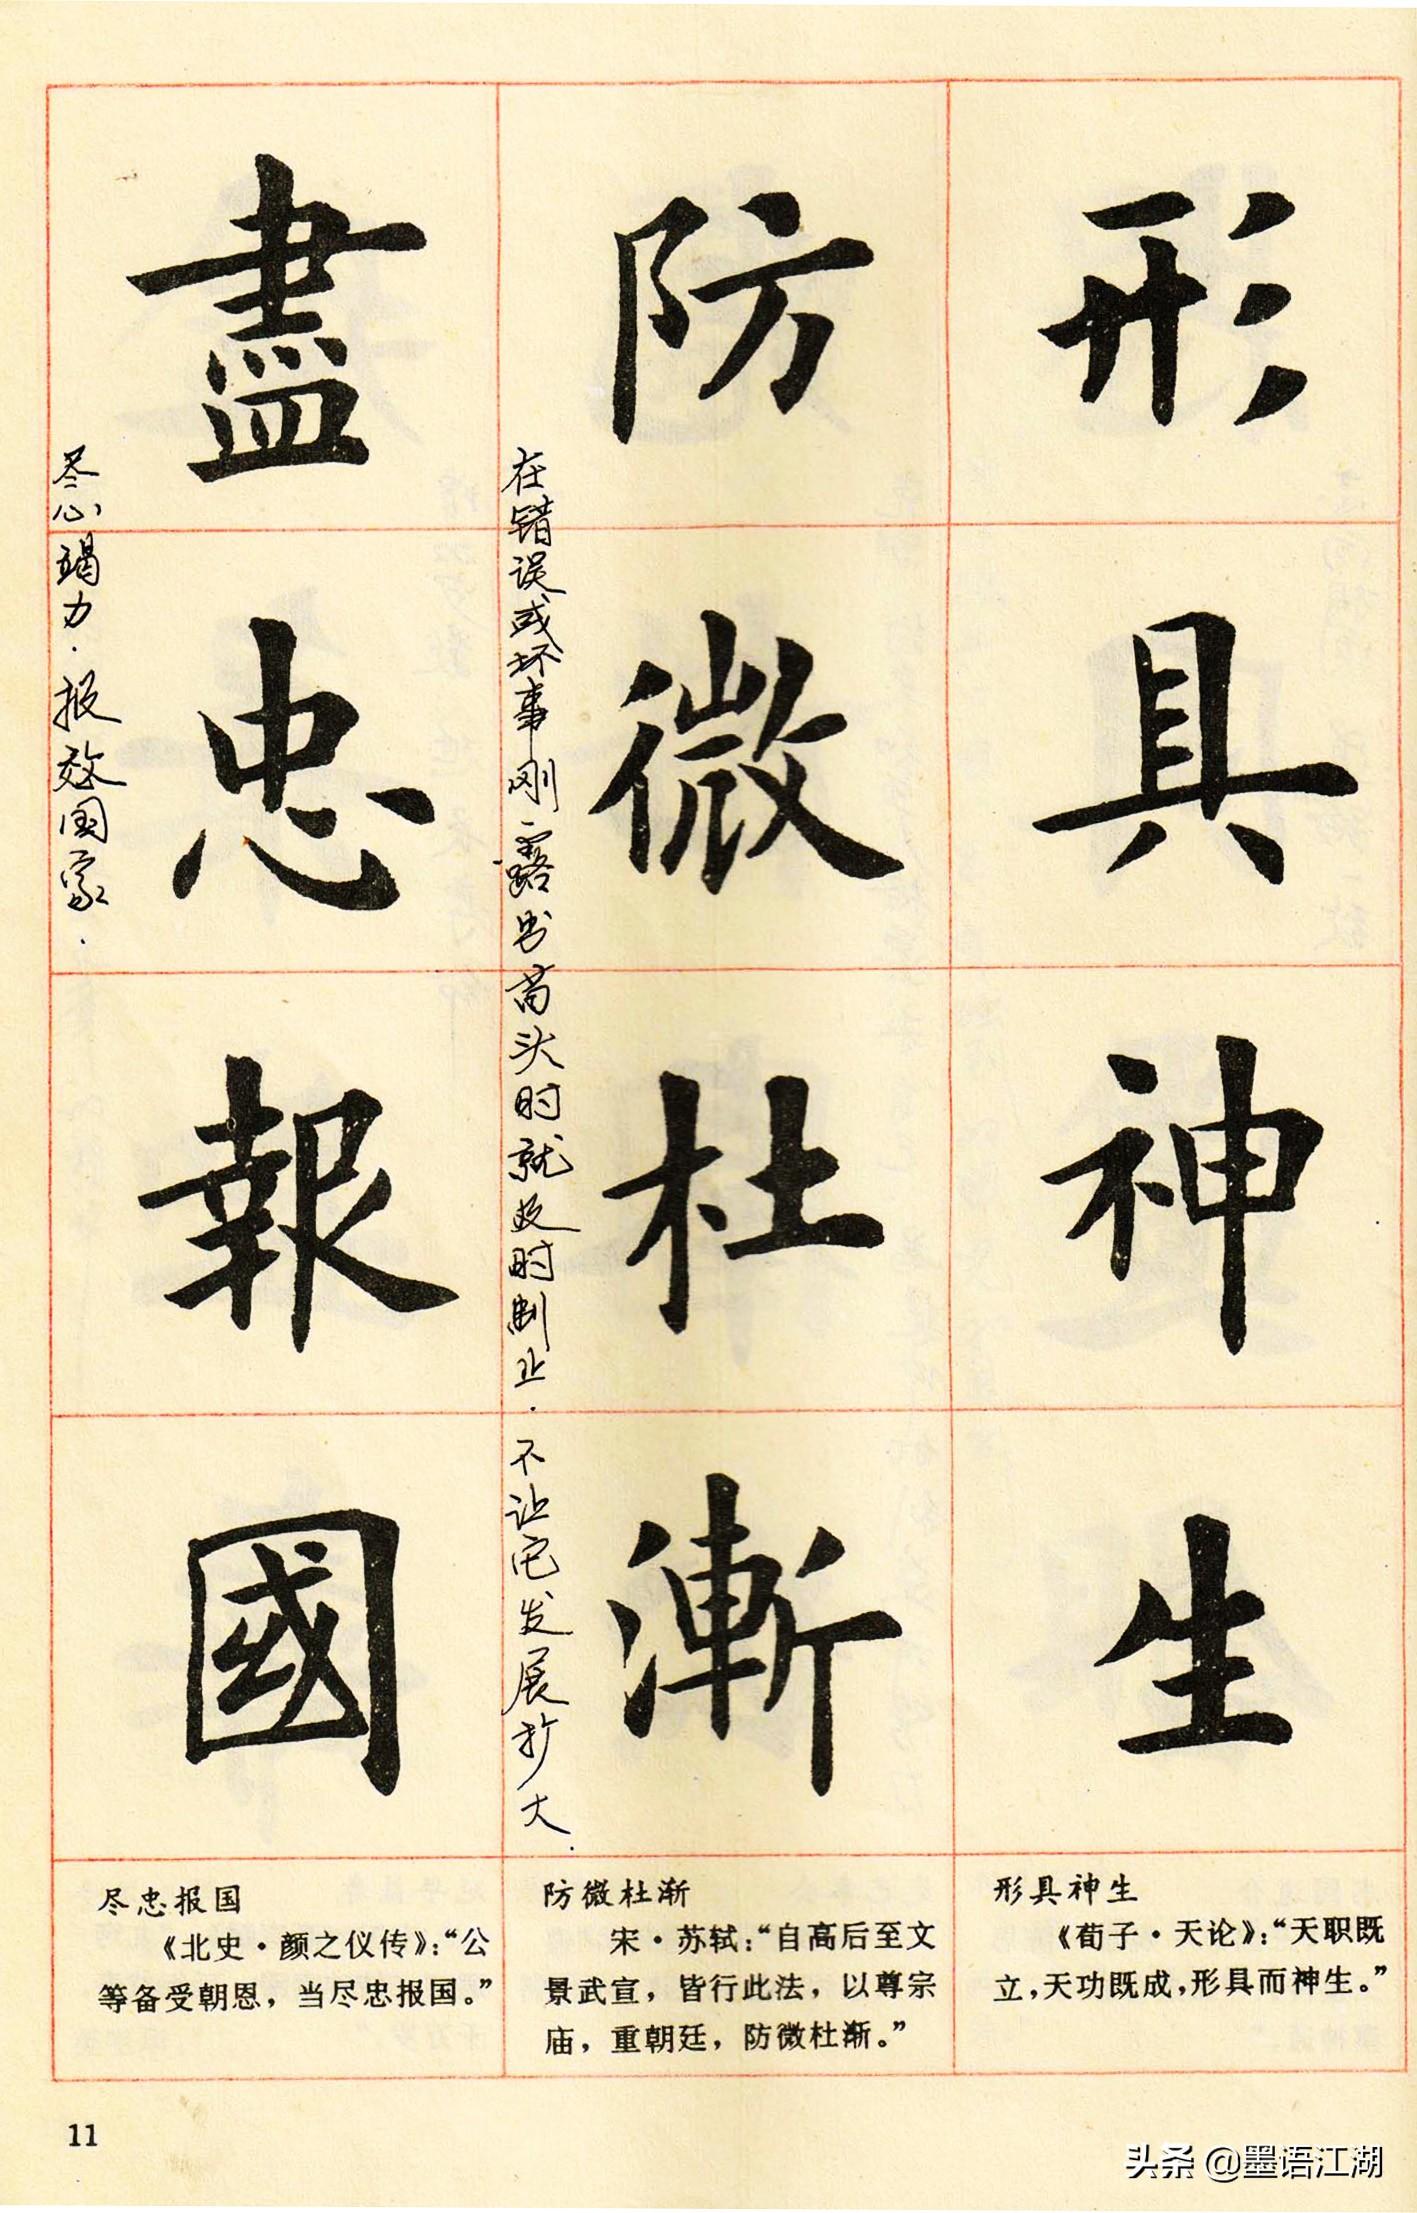 形具神生
防微杜漸
在错误或坏事刚露出苗头时就及时制止.不让它发展扩大.
盡忠報國
尽心竭力.报效国家.
形具神生
《荀子·天论》:“天职既
立,天功既成,形具而神生。”
防微杜渐
宋·苏轼:“自高后至文
景武宣,皆行此法,以尊宗
庙,重朝廷,防微杜渐。”
尽忠报国
《北史·颜之仪传》:“公
等备受朝恩,当尽忠报国。”
11
头条 @墨语江湖